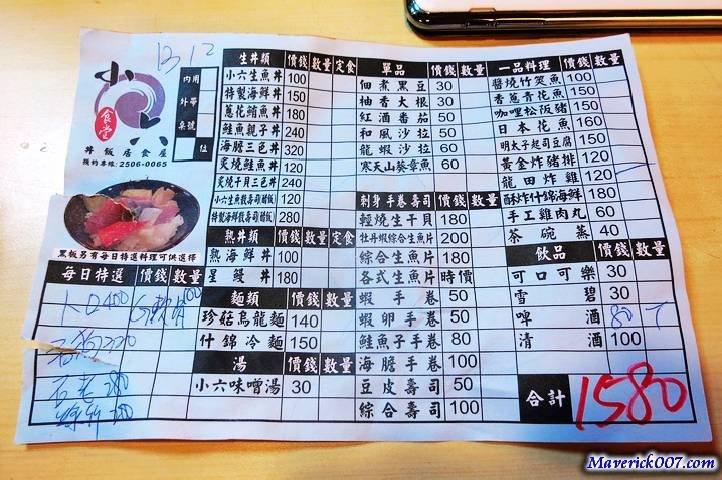 13 12
小六食堂
丼飯居食屋
預約專線：2506-0065
內用
外帶
桌號 位
生丼類 價錢 數量 定食
小六生魚丼 100
特製海鮮丼 150
蔥花鮪魚丼 180
鮭魚親子丼 240
海膽三色丼 320
炙燒鮭魚丼 120
炙燒干貝三色丼 240
小六生魚散壽司(醋飯) 120
特製海鮮散壽司(醋飯) 280
熟丼類 價錢 數量 定食
熟海鮮丼 100
星鰻丼 180
麵類 價錢 數量
珍菇烏龍麵 140
什錦冷麵 150
湯 價錢 數量
小六味噌湯 30
單品 價錢 數量
佃煮黑豆 30
柚香大根 30
紅酒番茄 50
和風沙拉 50
龍蝦沙拉 60
寒天山葵章魚 60
刺身手卷壽司 價錢 數量
輕燒生干貝 180
牡丹蝦綜合生魚片 200
綜合生魚片 180
各式生魚片 時價
蝦手卷 50
蝦卵手卷 50
鮭魚子手卷 80
海膽手卷 100
豆皮壽司 50
綜合壽司 100
一品料理 價錢 數量
醬燒竹筴魚 100
香蔥青花魚 150
咖哩松阪豬 150
日本花魚 160
明太子起司豆腐 120
黃金炸豬排 120
龍田炸雞 120
酥炸什錦海鮮 180
手工雞肉丸 60
茶碗蒸 40
飲品 價錢 數量
可口可樂 30
雪碧 30
啤酒 80 T
清酒 100
合計 1580
黑板另有每日特選料理可供選擇
每日特選 價錢 數量
400
100
220
280
Maverick007.com